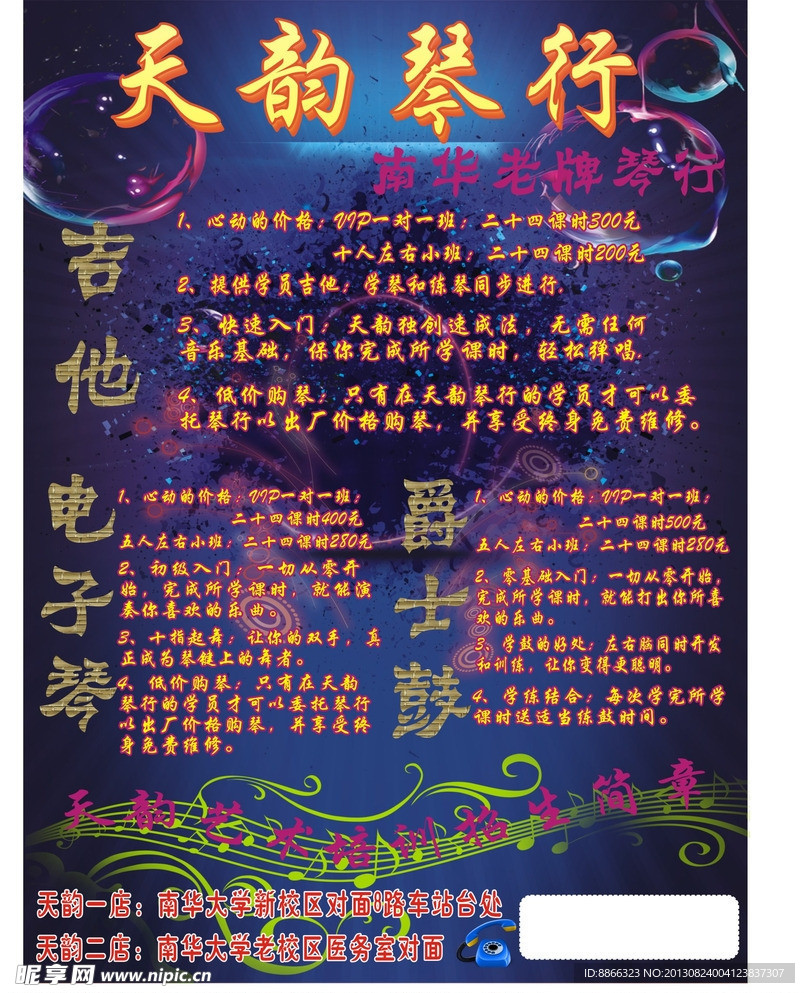 天韵琴行
南华老牌琴行
吉他
1、心动的价格：VIP一对一班：二十四课时300元
十人左右小班：二十四课时200元
2、提供学员吉他：学琴和练琴同步进行.
3、快速入门：天韵独创速成法，无需任何
音乐基础，保你完成所学课时，轻松弹唱.
4、低价购琴：只有在天韵琴行的学员才可以委
托琴行以出厂价格购琴，并享受终身免费维修。
电子琴
1、心动的价格：VIP一对一班：
二十四课时400元
五人左右小班：二十四课时280元
2、初级入门：一切从零开
始，完成所学课时，就能演
奏你喜欢的乐曲。
3、十指起舞：让你的双手，真
正成为琴键上的舞者。
4、低价购琴：只有在天韵
琴行的学员才可以委托琴行
以出厂价格购琴，并享受终
身免费维修。
爵士鼓
1、心动的价格：VIP一对一班：
二十四课时500元
五人左右小班：二十四课时280元
2、零基础入门：一切从零开始，
完成所学课时，就能打出你所喜
欢的乐曲。
3、学鼓的好处：左右脑同时开发
和训练，让你变得更聪明。
4、学练结合：每次学完所学
课时送适当练鼓时间。
天韵艺术培训招生简章
天韵一店：南华大学新校区对面8路车站台处
天韵二店：南华大学老校区医务室对面
昵享网 www.nipic.cn
ID:8866323 NO:20130824004123837307